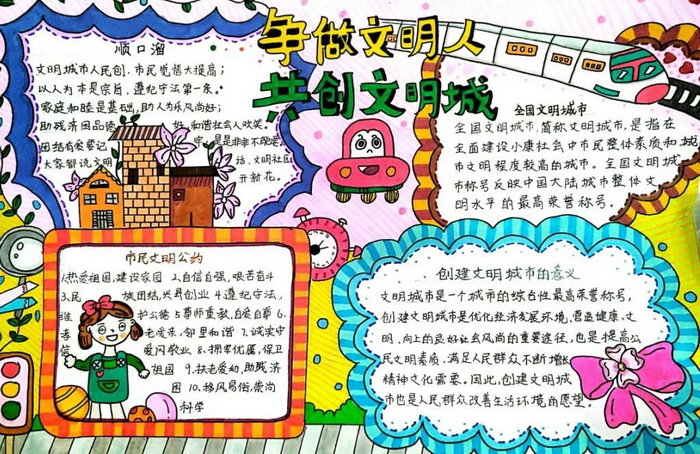 争做文明人
共创文明城
顺口溜
文明城市人民创,市民觉悟大提高;
以人为本是宗旨,遵纪守法第一条。
家庭和睦是基础,助人为乐风尚好;
助残济困品德好,和谐社会人欢笑。
团结友爱要记 是是非非不
大家都说文明话,文明社区
开新花。
全国文明城市
全国文明城市,简称文明城市,是指在
全面建设小康社会中市民整体素质和城
市文明程度较高的城市。全国文明城
市称号反映中国大陆城市整体文
明水平的最高荣誉称号。
市民文明公约
1.热爱祖国,建设家园 2.自信自强,艰苦奋斗
3.民 族团结,兴县创业 4.遵纪守法,
维 护公德 5.尊师重教,自爱自尊 6.
孝 老爱亲,邻里和谐 7.诚实守
信 爱岗敬业 8.拥军优属,保卫
祖国 9.扶老爱幼,助残济
困 10.移风易俗,崇尚
科学
创建文明城市的意义
文明城市是一个城市的综合性最高荣誉称号,
创建文明城市是优化经济发展环境,营造健康、文
明、向上的良好社会风尚的重要途径,也是提高公
民文明素质,满足人民群众不断增长
精神文化需要。因此,创建文明城
市也是人民群众改善生活环境的愿望。